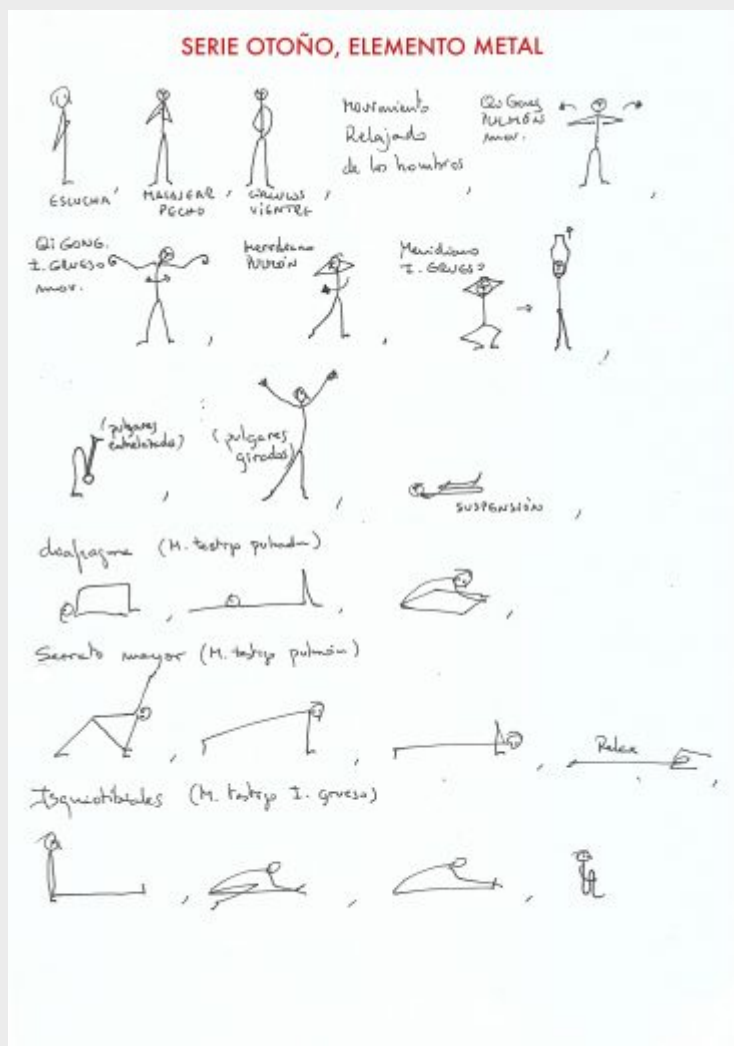 SERIE OTOÑO, ELEMENTO METAL
ESCUCHA,
MASAJEAR
PECHO,
CÍRCULOS
VIENTRE,
Movimiento
Relajado
de los hombros,
Qi Gong
PULMÓN
mov.
Qi GONG.
I. GRUESO
mov.
Meridiano
PULMÓN
Meridiano
I. GRUESO
(pulgares
entrelazados)
(pulgares
girados)
SUSPENSIÓN,
diafragma (M. testigo pulmón)
Serrato mayor (M. testigo pulmón)
Relax
Isquiotibiales (M. testigo I. grueso)